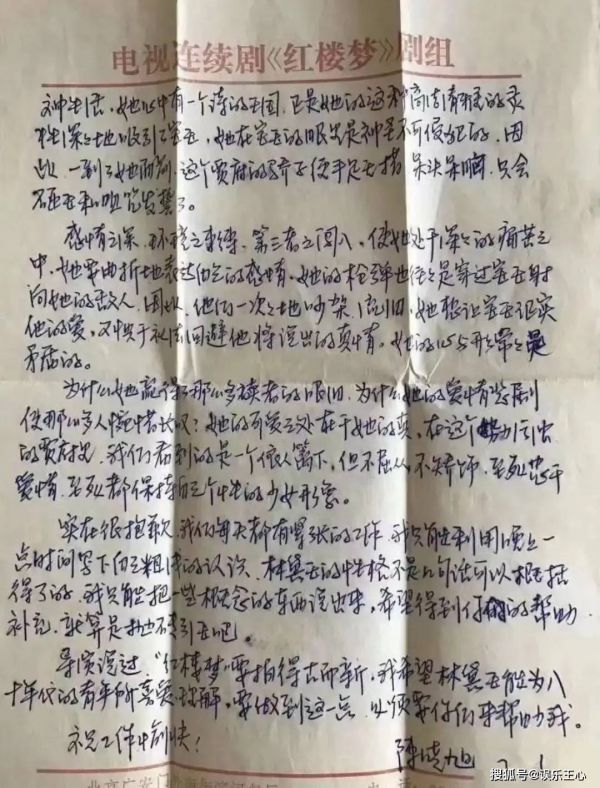 电视连续剧《红楼梦》剧组
神生活，她心中有一个诗的王国，正是她的这种高洁的灵
性深深地吸引了宝玉，她在宝玉的眼里是神圣不可侵犯的，因
此，一到了她面前，这个贾府的骄子便手足无措、呆头呆脑，只会
感情之深，环境之束缚，第三者之闯入，使她处于深深的痛苦之
中，她要曲折地表达自己的感情，她的枪弹也往往是穿过宝玉射
向她的敌人，因此，他们一次次地吵架、流泪，她想让宝玉证实
他的爱，又惧于礼法回避他将说出的真情。她的心与形常常是
矛盾的。
为什么她赢得了那么多读者的眼泪，为什么她的爱情悲剧
使那么多人惋惜长叹？她的可爱之处在于她的真，在这个
的贾府里，我们看到的是一个依人篱下，但不屈从，不矫饰，至死忠于
爱情，至死都保持自己个性的少女形象。
实在很抱歉，我们每天都有紧张的工作，我只能利用晚上一
点时间写下自己粗浅的认识，林黛玉的性格不是几句话可以概括
得了的，我只能把一些概念的东西说出来，希望得到你们的帮助
补充，就算是抛砖引玉吧。
导演说过“红楼梦”要拍得古而新，我希望林黛玉能为八
十年代的青年所喜爱、理解，要做到这一点，必须要你们来帮助我。
祝工作愉快！
陈晓旭
搜狐号@娱乐王心